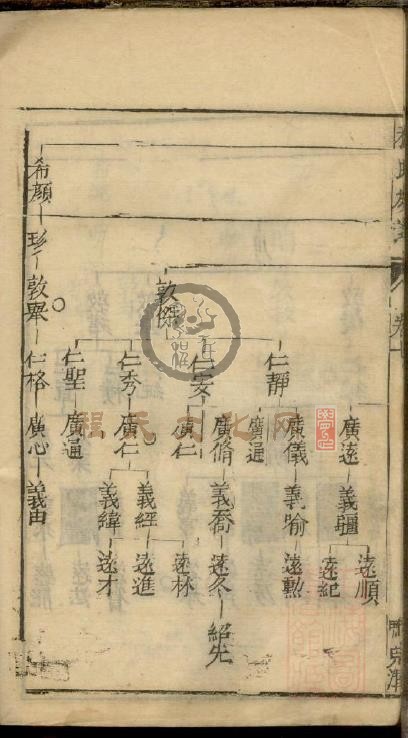 敦傑
仁靜
廣遠
義疆
遠順
遠紀
廣儀
義喻
遠勳
廣通
仁安
廣脩
義喬
遠久
紹先
廣仁
仁秀
廣仁
義經
遠林
遠進
義緯
遠才
仁聖
廣通
希顏
珍
敦舉
仁格
廣心
義由
程氏文化网